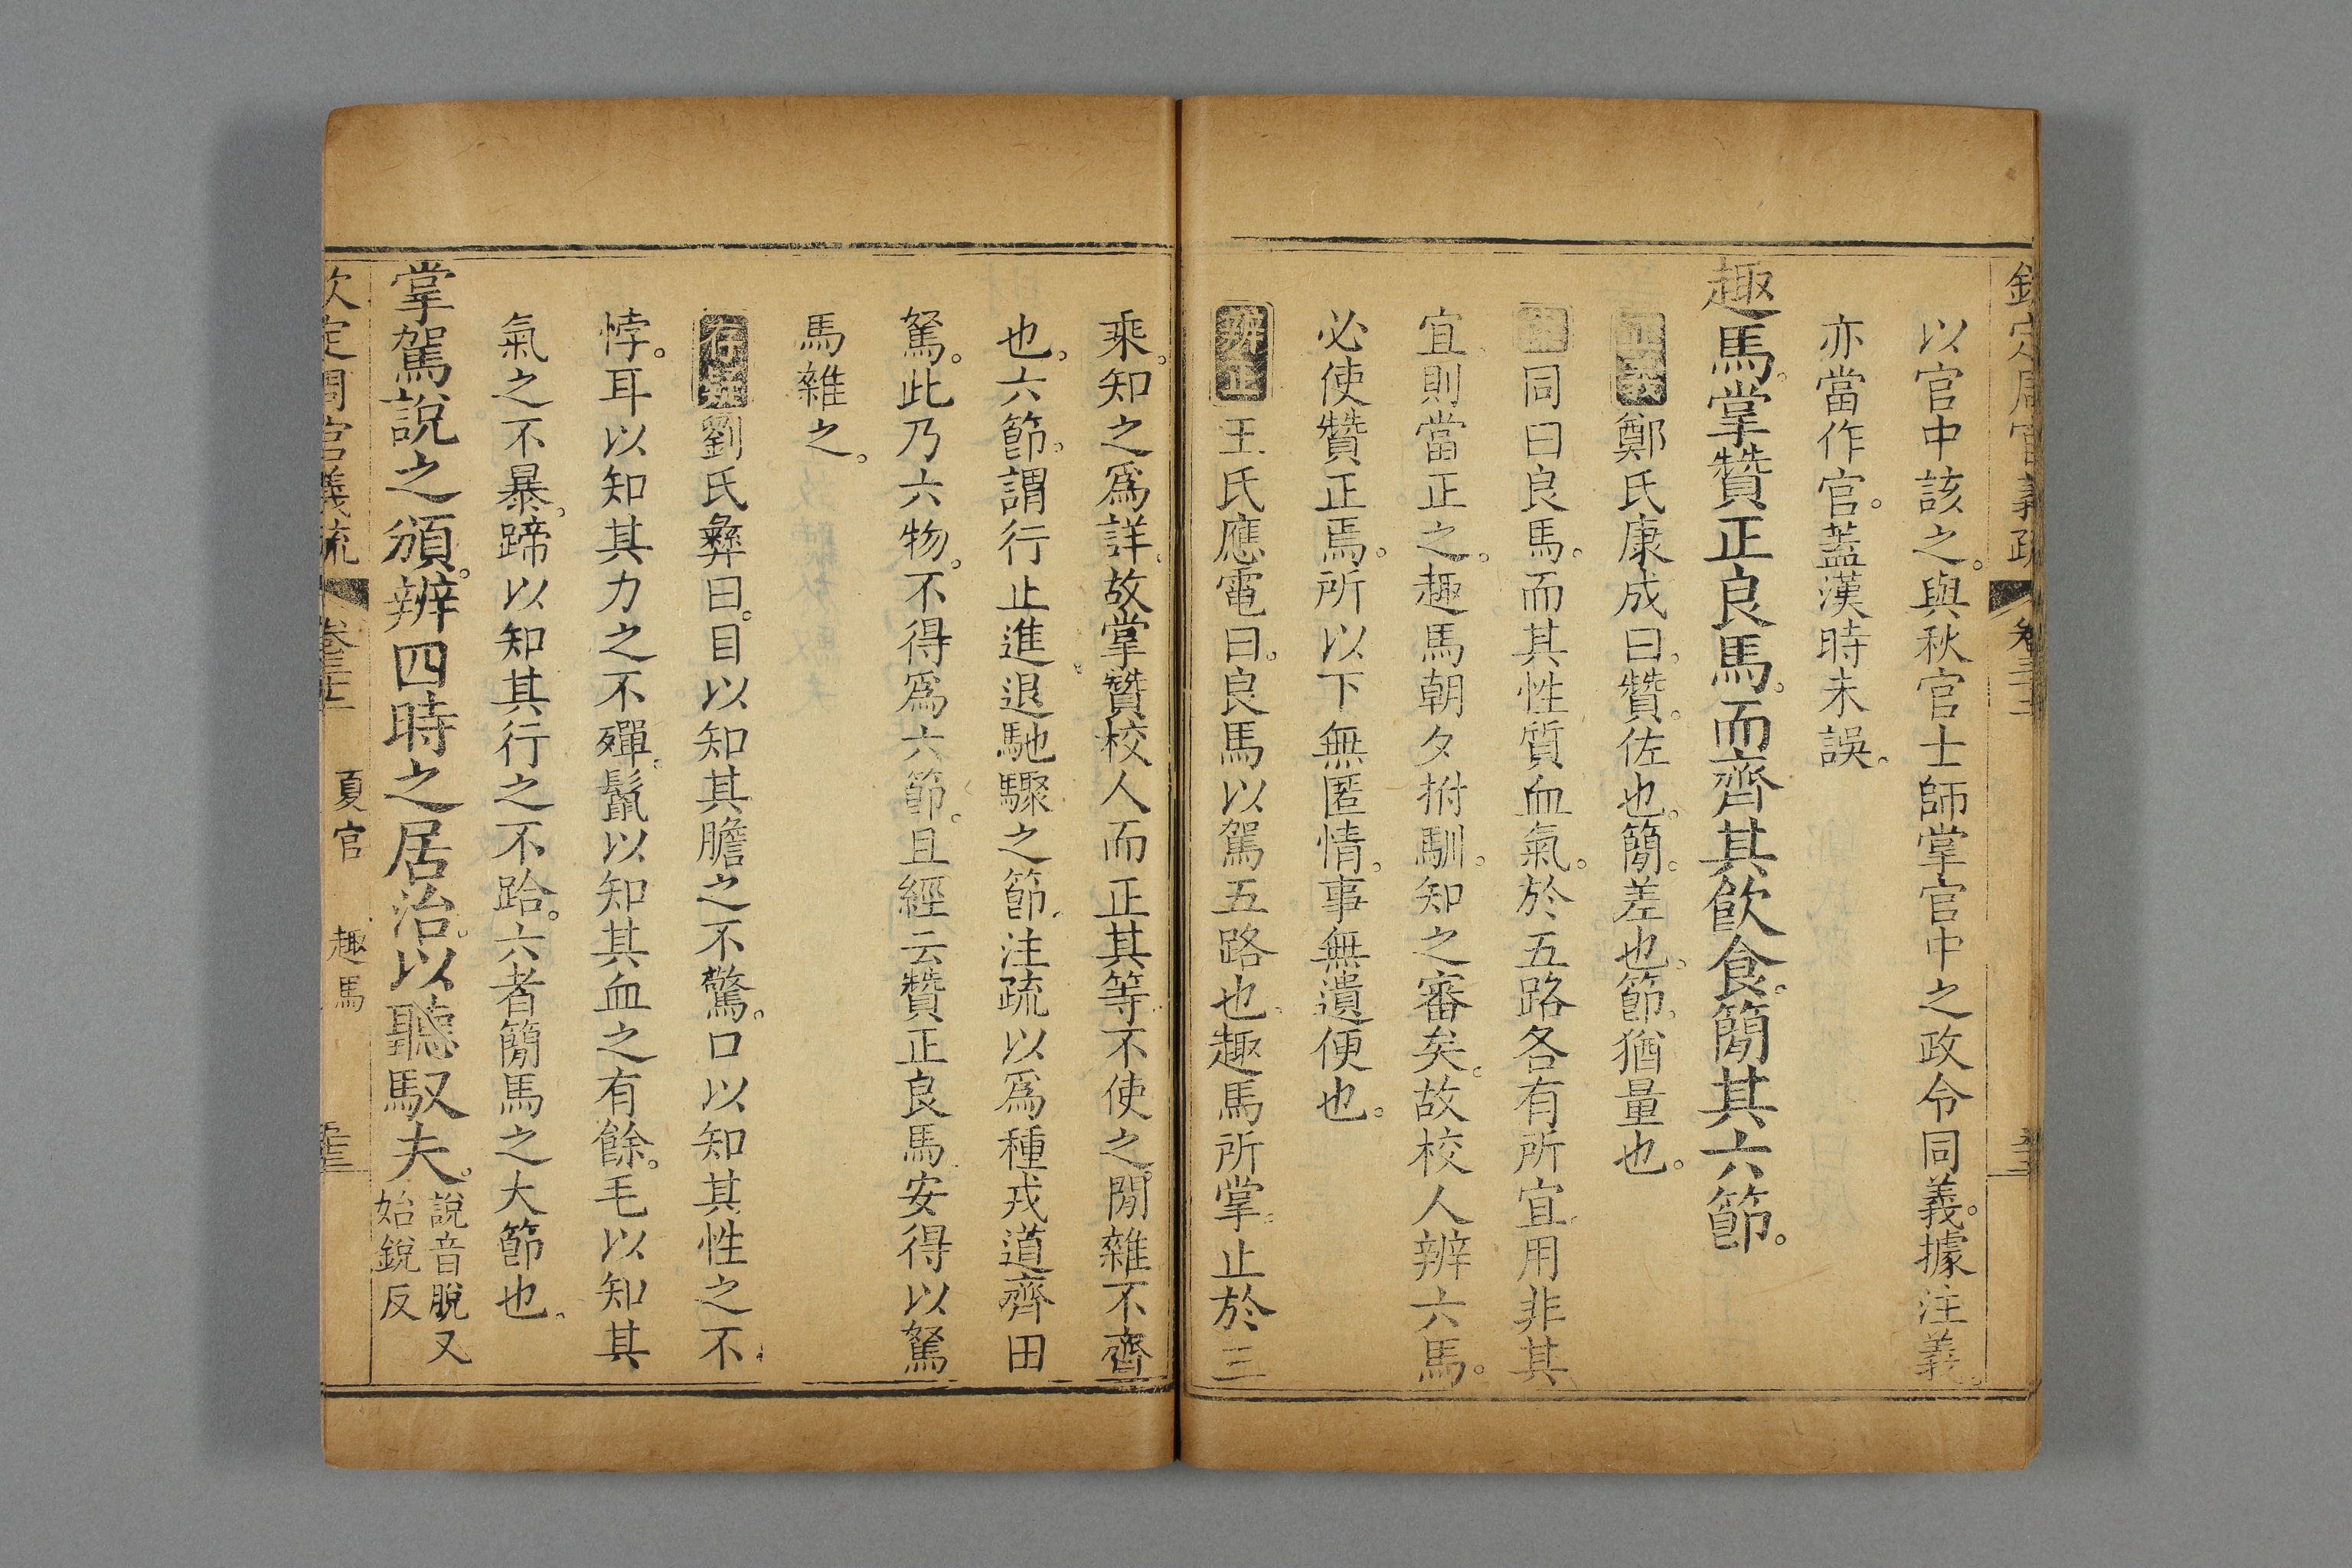 欽定周官義疏 卷三十二
以官中該之。與秋官士師掌官中之政令同義。據注義。
亦當作官。蓋漢時未誤。
趣馬。掌贊正良馬。而齊其飲食。簡其六節。
正義鄭氏康成曰。贊。佐也。簡。差也。節。猶量也。
同曰良馬。而其性質血氣。於五路各有所宜。用非其
宜。則當正之。趣馬朝夕拊馴。知之審矣。故校人辨六馬。
必使贊正焉。所以下無匿情。事無遺便也。
辨正王氏應電曰。良馬以駕五路也。趣馬所掌。止於三
乘。知之爲詳。故掌贊校人而正其等。不使之閒雜不齊
也。六節。謂行止進退馳驟之節。注疏以爲種戎道齊田
駑。此乃六物。不得爲六節。且經云贊正良馬。安得以駑
馬雜之。
存異劉氏彝曰。目以知其膽之不驚。口以知其性之不
悖。耳以知其力之不殫。鬣以知其血之有餘。毛以知其
氣之不暴。蹄以知其行之不跲。六者簡馬之大節也。
掌駕說之頒。辨四時之居治。以聽馭夫。說音脫又
始銳反
欽定周官義疏 卷三十二 夏官 趣馬